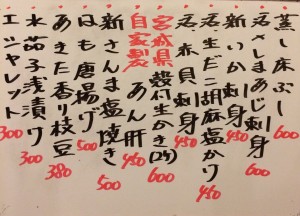 蒸し床ぶし 600
活〆しまあじ刺身 600
新いか刺身 450
活、赤貝刺身 450
活、生だこ胡麻塩かり 450
宮城県 殻付生かき(2ケ) 600
自家製 あん肝 450
新さんま塩焼き 500
はも唐揚げ 500
あきた香り枝豆 380
水茄子浅漬け 300
エシャレット 300